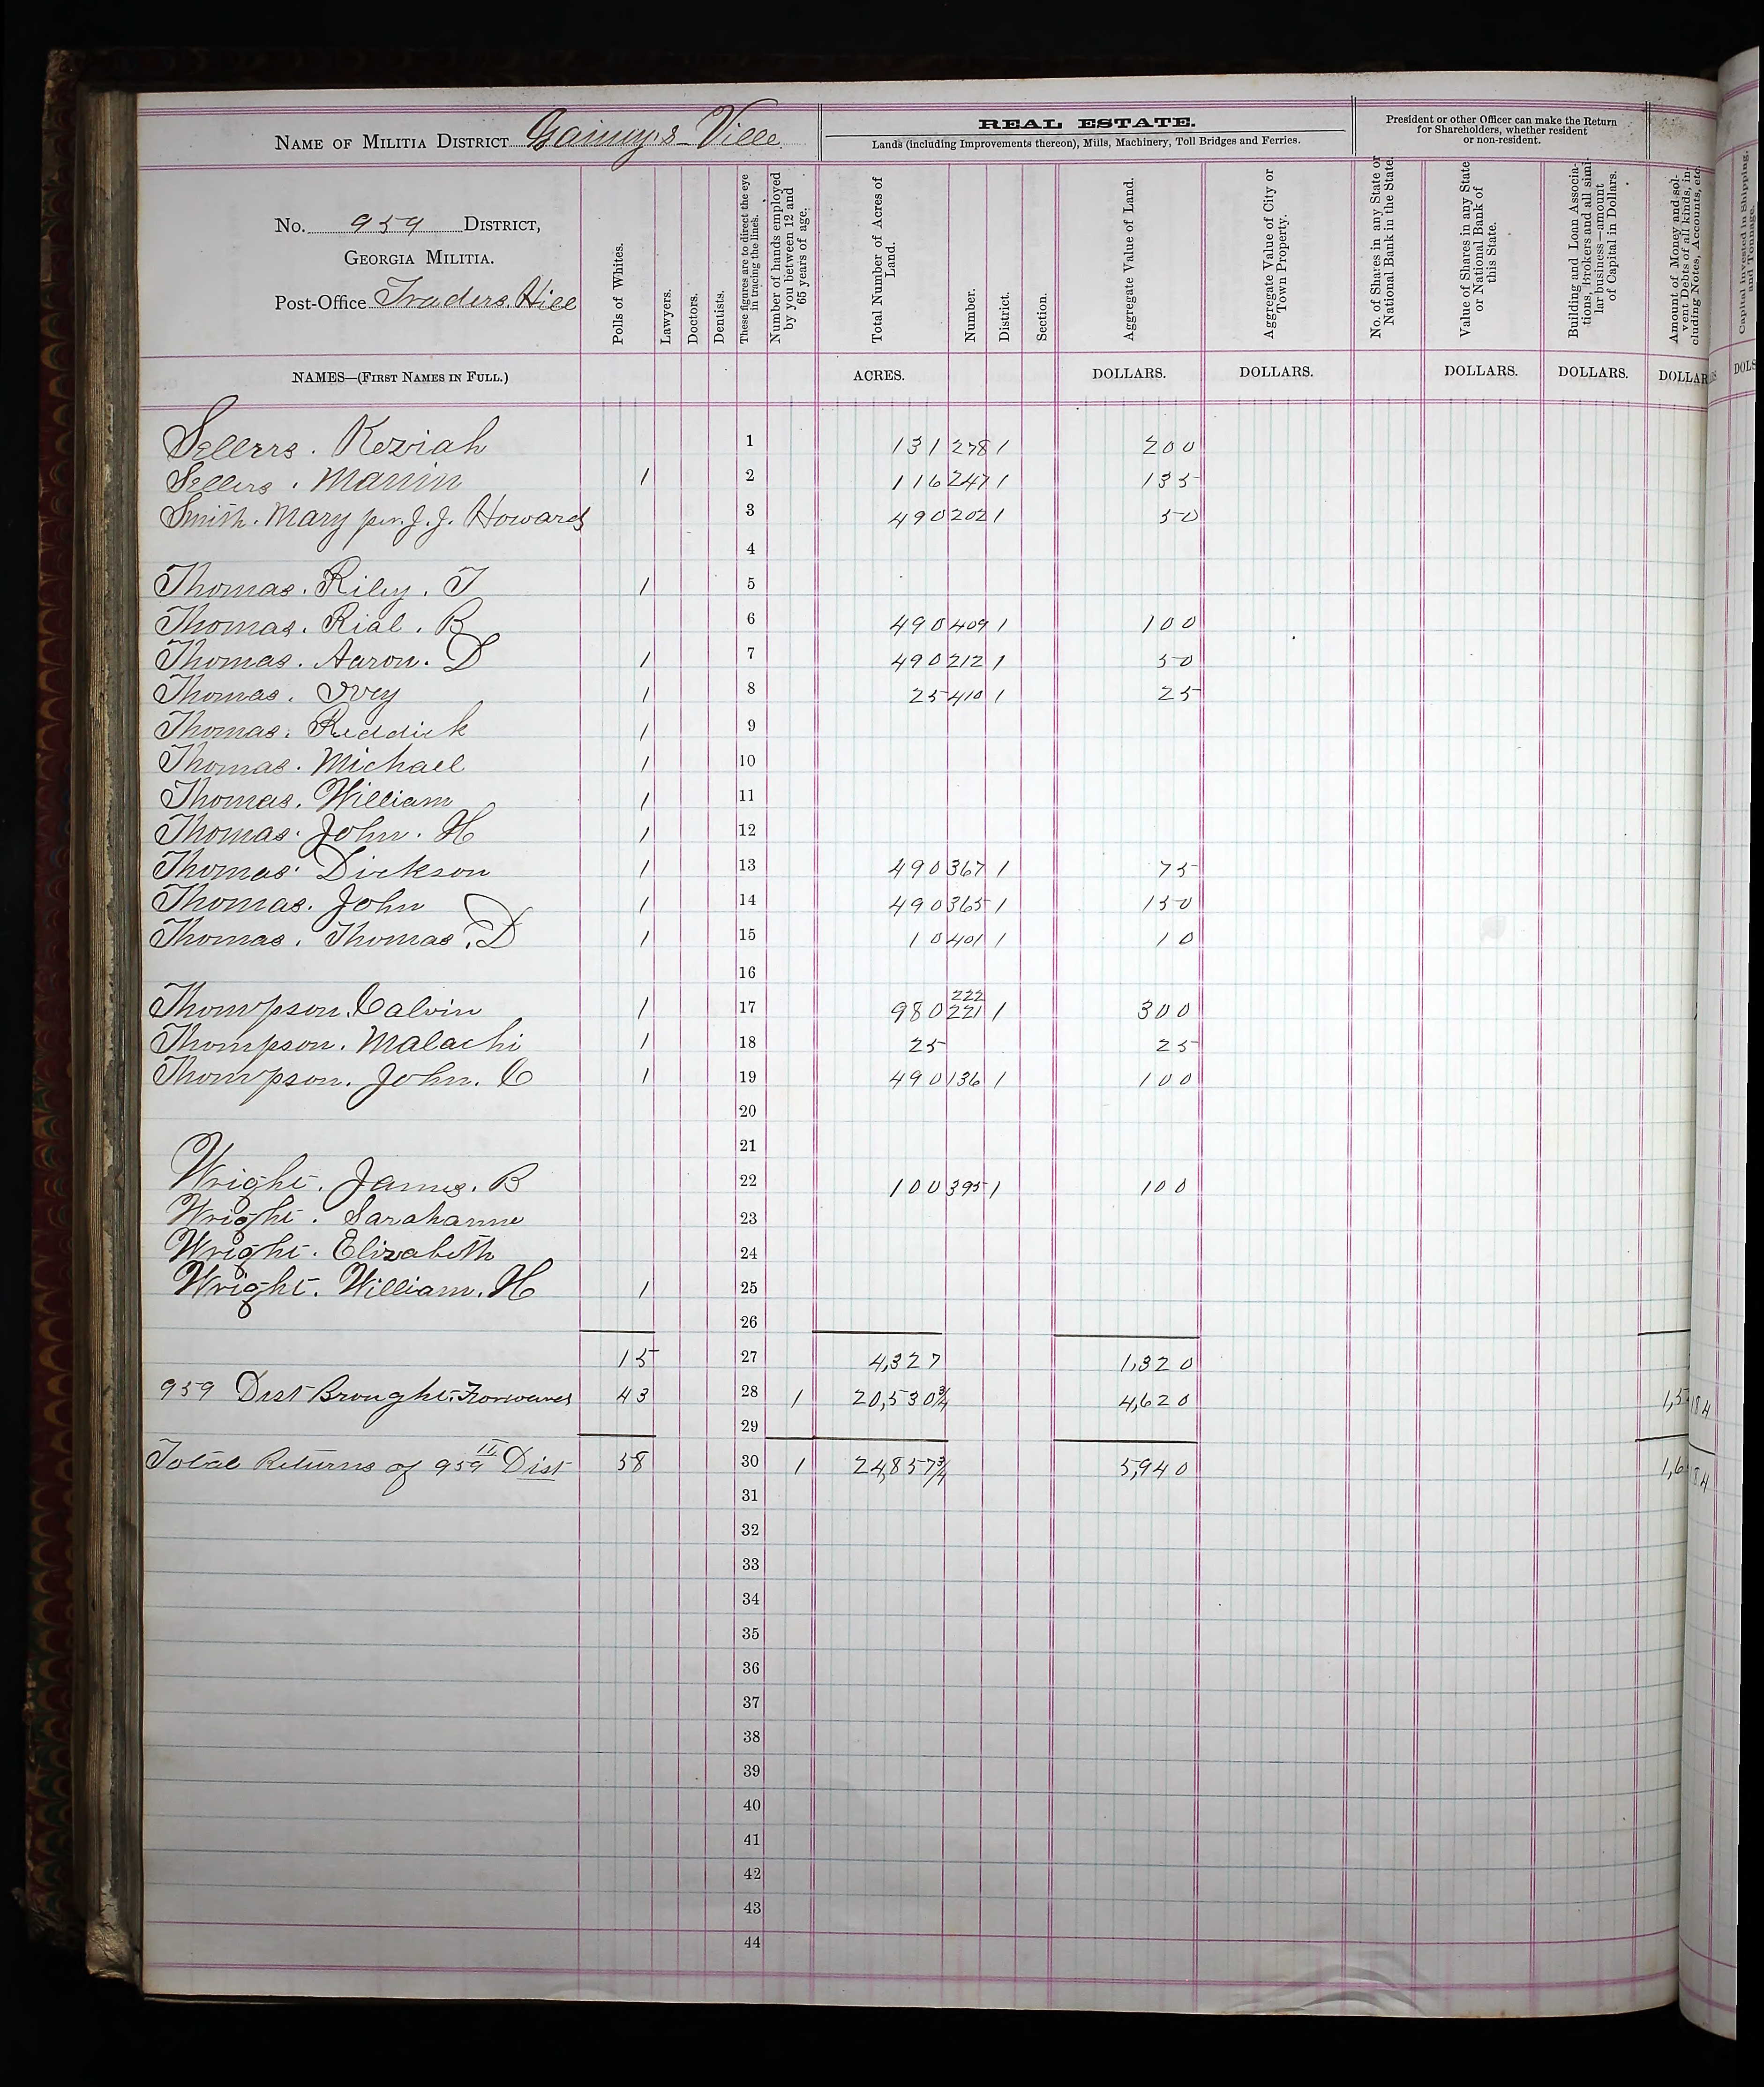 NAME OF MILITIA DISTRICT Gainuys-Ville
No. 959 DISTRICT,
GEORGIA MILITIA.
Post-Office Traders Hill
Polls of Whites.
Lawyers.
Doctors.
Dentists.
These figures are to direct the eye in tracing the lines.
Number of hands employed by you between 12 and 65 years of age.
REAL ESTATE.
Lands (including Improvements thereon), Mills, Machinery, Toll Bridges and Ferries.
Total Number of Acres of Land.
Number.
District.
Section.
Aggregate Value of Land.
Aggregate Value of City or Town Property.
President or other Officer can make the Return
for Shareholders, whether resident
or non-resident.
No. of Shares in any State or National Bank in the State.
Value of Shares in any State or National Bank of this State.
Building and Loan Associations, Brokers and all similar business—amount of Capital in Dollars.
Amount of Money and solvent Debts of all kinds, including Notes, Accounts, etc.
Capital invested in Shipping, and Tonnage.
NAMES—(FIRST NAMES IN FULL.) ACRES. DOLLARS. DOLLARS. DOLLARS. DOLLARS. DOLLAR DOLS
Sellers. Keziah 1 131 278 1 200
Sellers. Mannin 1 2 116 247 1 135
Smith. Mary per. J. J. Howard 3 490 202 1 50
4
Thomas. Riley. T 1 5
Thomas. Rial. B 6 490 409 1 100
Thomas. Aaron. D 1 7 490 212 1 50
Thomas. Ivey 1 8 25 410 1 25
Thomas. Reddick 1 9
Thomas. Michael 1 10
Thomas. William 1 11
Thomas. John. H 1 12
Thomas. Dickson 1 13 490 367 1 75
Thomas. John 1 14 490 365 1 150
Thomas. Thomas. D 1 15 10 401 1 10
16
222
Thompson. Calvin 1 17 980 221 1 300
Thompson. Malachi 1 18 25 25
Thompson. John. C 1 19 490 136 1 100
20
21
Wright. James. B 22 100 395 1 100
Wright. Sarahanne 23
Wright. Elizabeth 24
Wright. William. H 1 25
26
15 27 4,327 1,320
959 Dist Brought. Forward 43 28 1 20,530¾ 4,620
29
Total Returns of 959th Dist 58 30 1 24,857¾ 5,940
31
32
33
34
35
36
37
38
39
40
41
42
43
44